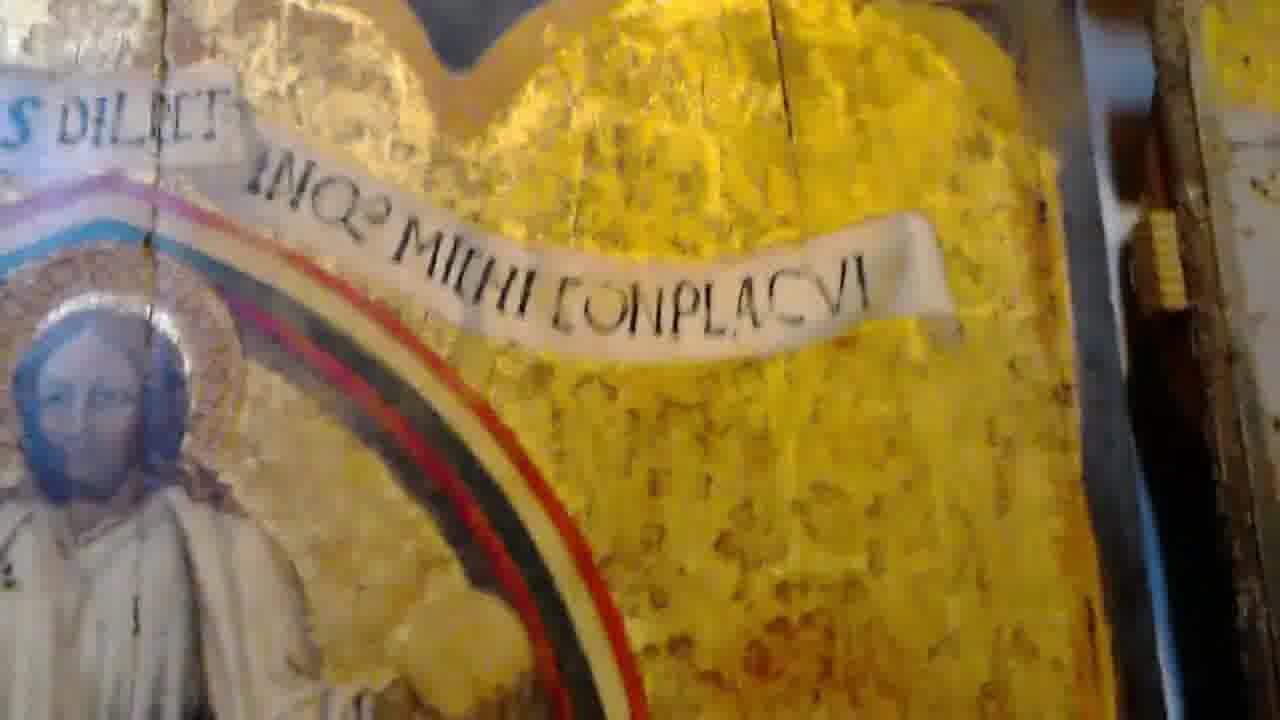 S DILECT
INQO MICHI CONPLACVI